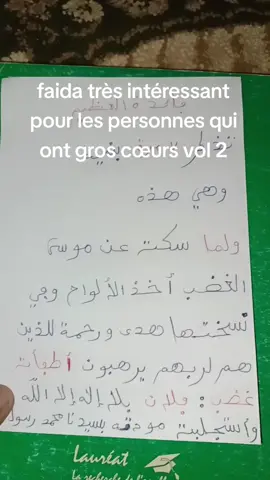 faida très intéressant
pour les personnes qui
ont gros cœurs vol 2
وهي هذه
ولما سكتة عن موسى
الغضب أخذ الألواح وفي
نسختها هدى ورحمة للذين
هم لربهم يرهبون أطبأت
غضب: فلان بلا إله إلا الله
مودته بسيدنا محمد رسول
Lauréat
La recherche de l'